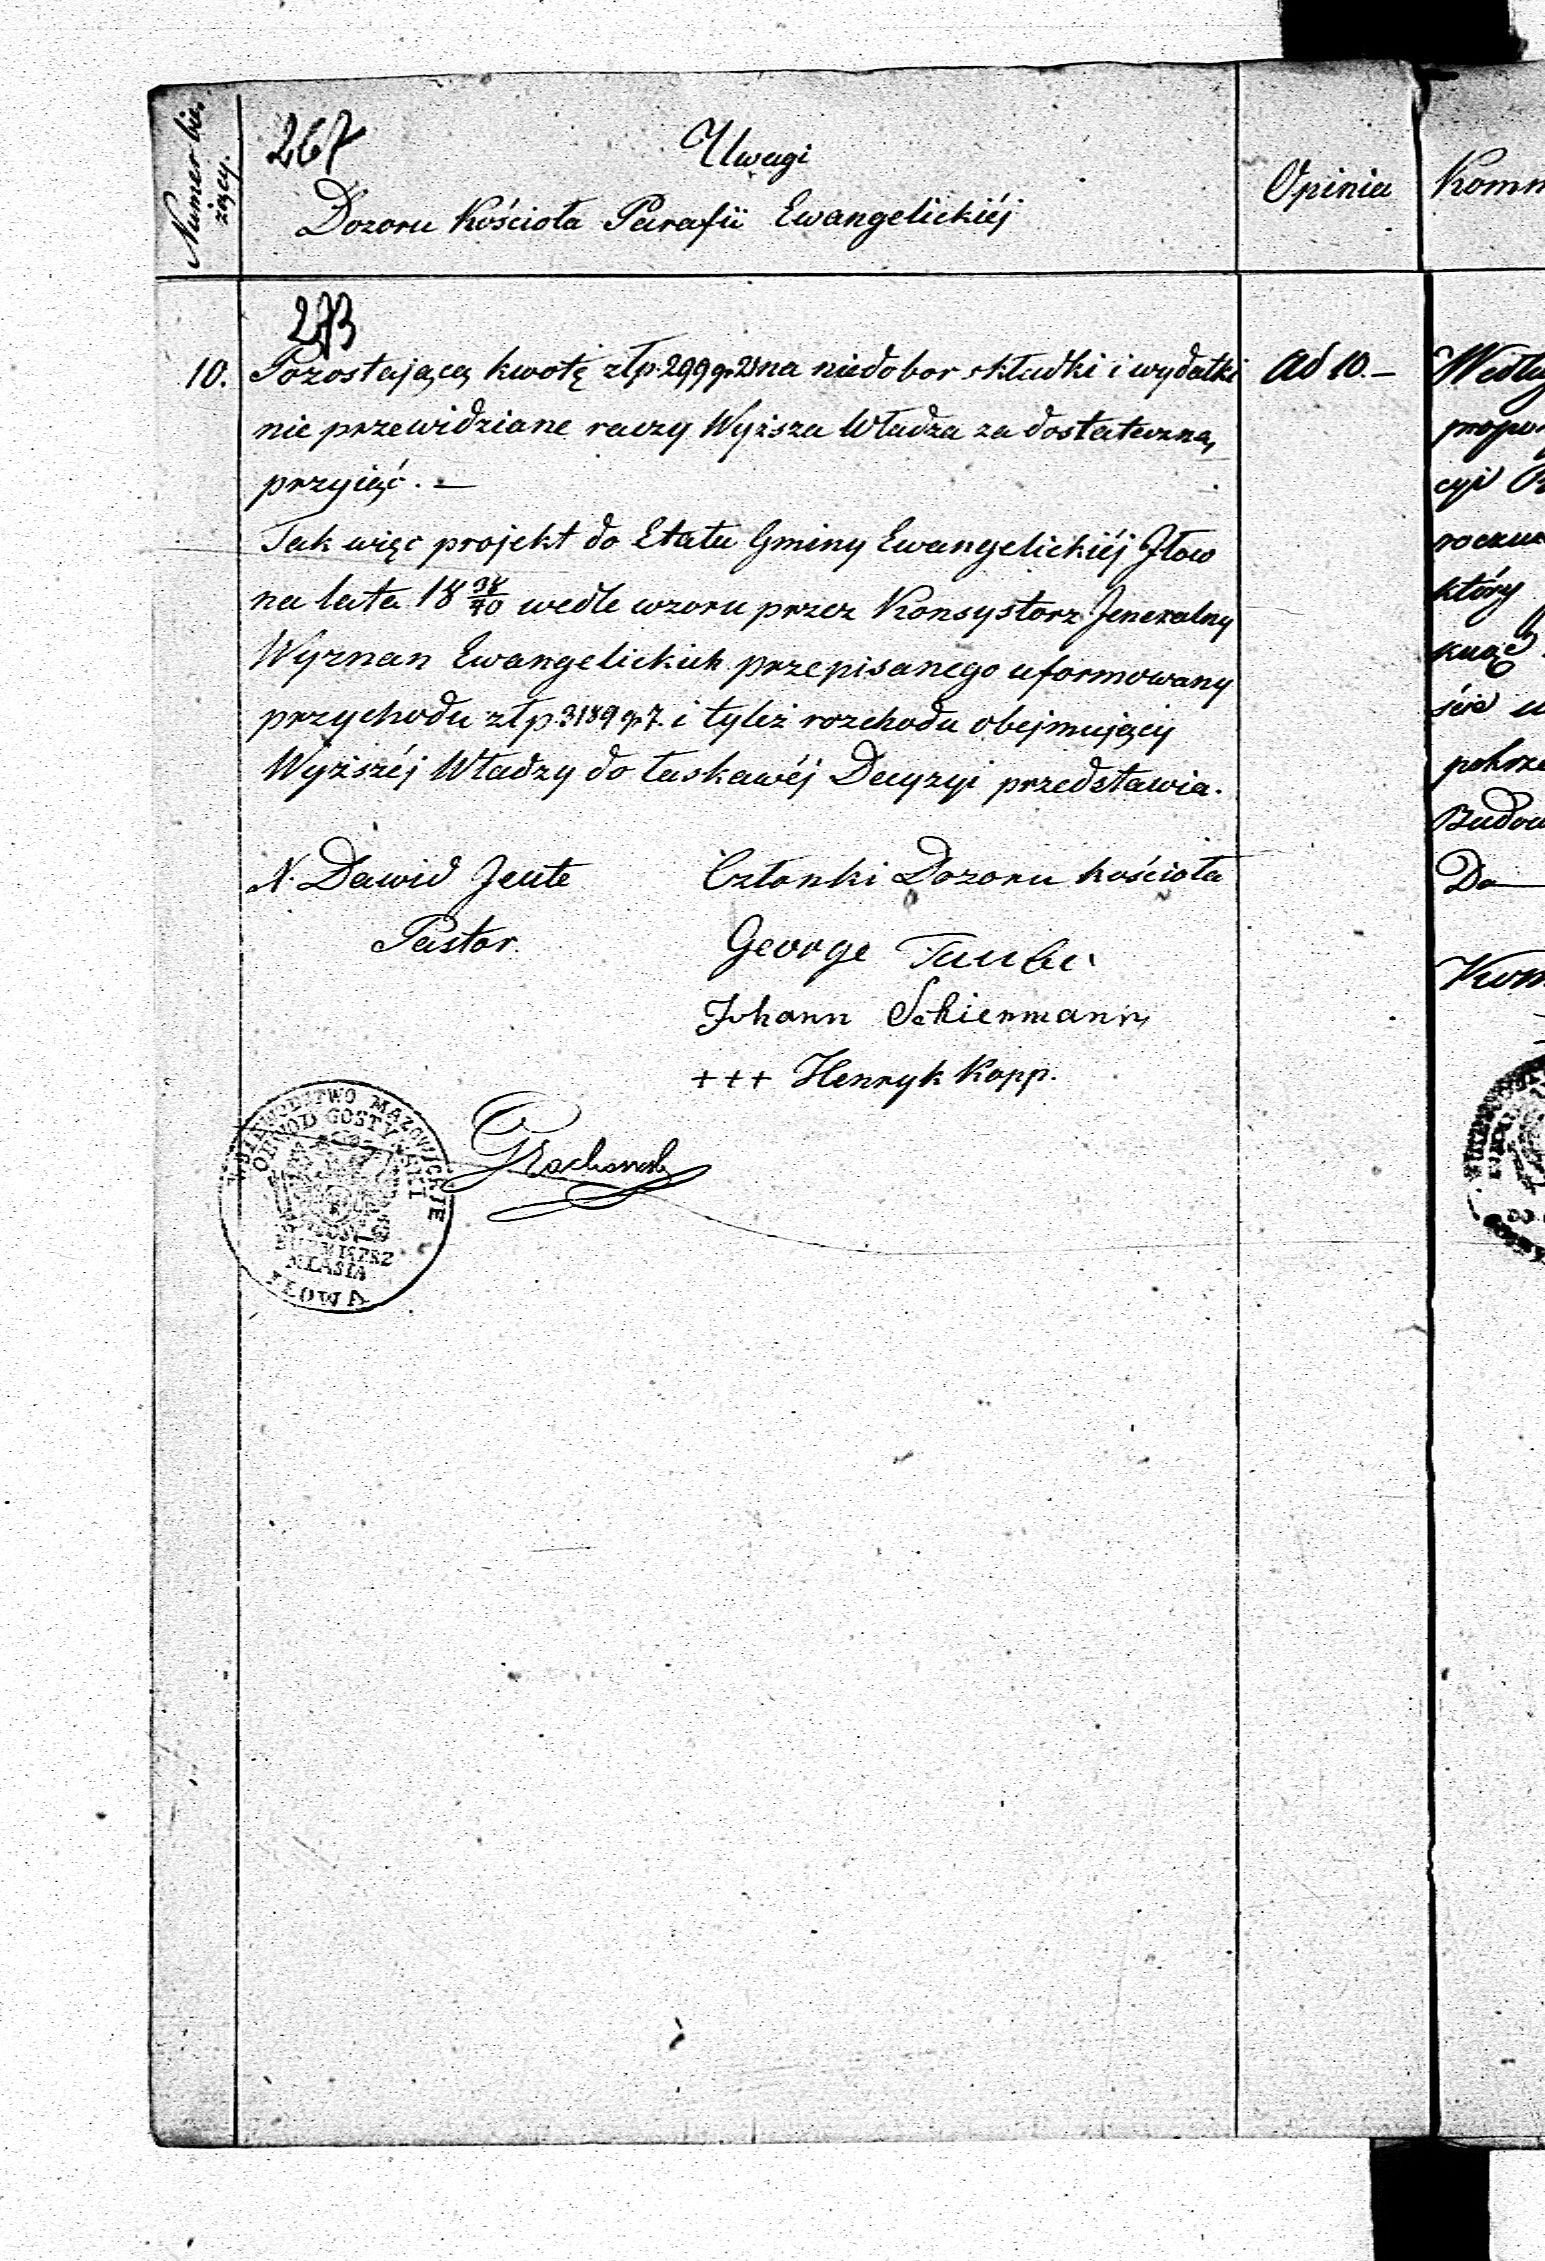 Numer bie,
żący.
267
Uwagi
Dozoru Kościoła Parafii Ewangelickiéj
Opinia
Komm
273
10. Pozostającą kwotę złp. 299 gr. 23 na niedobor składki i wydatki
nie przewidziane raczy Wyższa Władza za dostateczną
przyiąć. —
Tak więc projekt do Etatu Gminy Ewangelickiéj Jłow
na lata 18 38/40 wedle wzoru przez Konsystorz Jeneralny
Wyznan Ewangelickich przepisanego uformowany
przychodu złp. 3189 gr. 7. i tyleż rozchodu obejmujący
Wyższéj Władzy do łaskawéj Decyzyi przedstawia.
N. Dawid Jeute
Pastor.
Członki Dozoru kościoła
George
Johann Schienmann
+++ Henryk Kopp.
WOIEWODZTWO MAZOWIECKIE
OBWOD GOSTYNSKI
BURMISTRZ
MIASTA
IŁOWA
Ad 10. —
Wedlug
propor
cyi
roczn
który
ście u
potrze
Budow
Do —
Kom